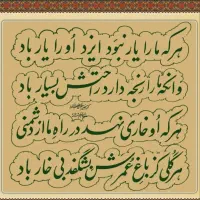 هرکه ما را یار نبود ایزد او را یار باد
وانکه ما را رنجه دارد راحتش بسیار باد
هرکه او خاری نهد در راه ما از دشمنی
هر گلی کز باغ عمرش بشکفد بی خار باد